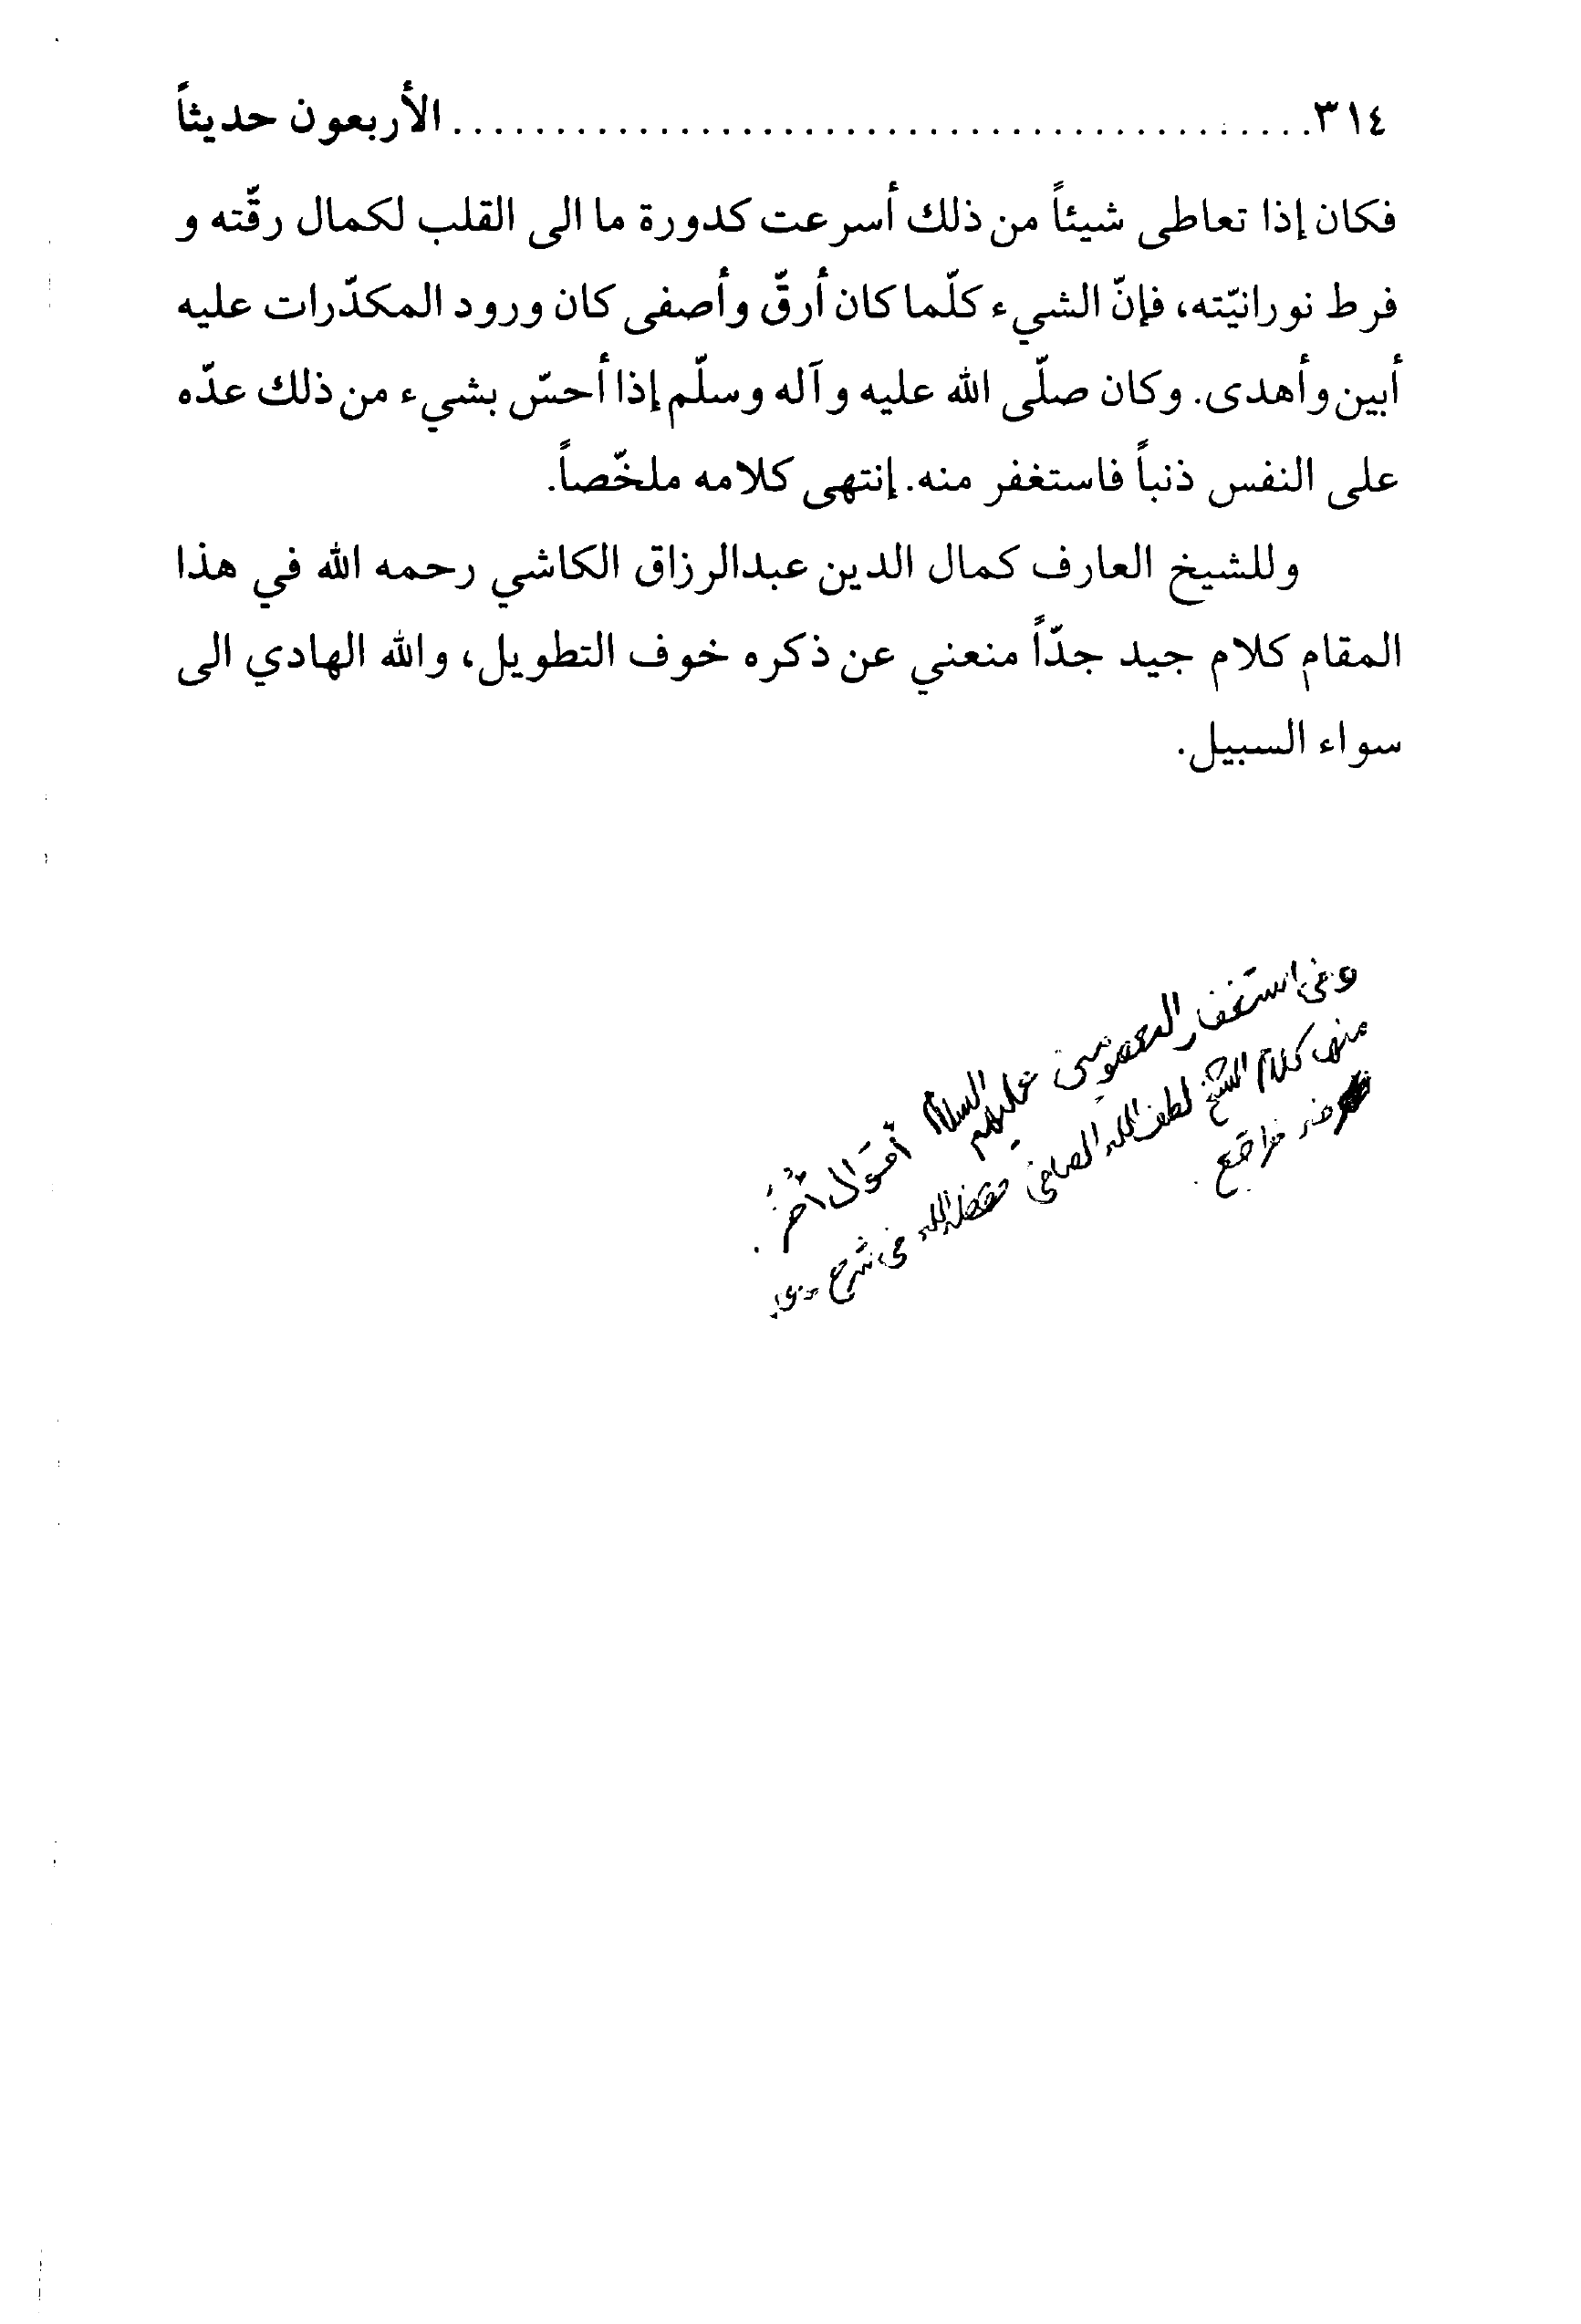 ٣١٤........................................الأربعون حديثاً
فكان إذا تعاطى شيئاً من ذلك أسرعت كدورة ما الى القلب لكمال رقّته و
فرط نورانيّته، فإنّ الشيء كلّما كان أرقّ وأصفى كان ورود المكدّرات عليه
أبين وأهدى. وكان صلّى الله عليه وآله وسلّم إذا أحسّ بشيء من ذلك عدّه
على النفس ذنباً فاستغفر منه. إنتهى كلامه ملخّصاً.
وللشيخ العارف كمال الدين عبدالرزاق الكاشي رحمه الله في هذا
المقام كلام جيد جدّاً منعني عن ذكره خوف التطويل، والله الهادي الى
سواء السبيل.
وفي استغفار المعصومين عليهم السلام أقوال أُخَر.
منها كلام الشيخ لطف الله الصافي حفظه الله في شرح
فراجع.